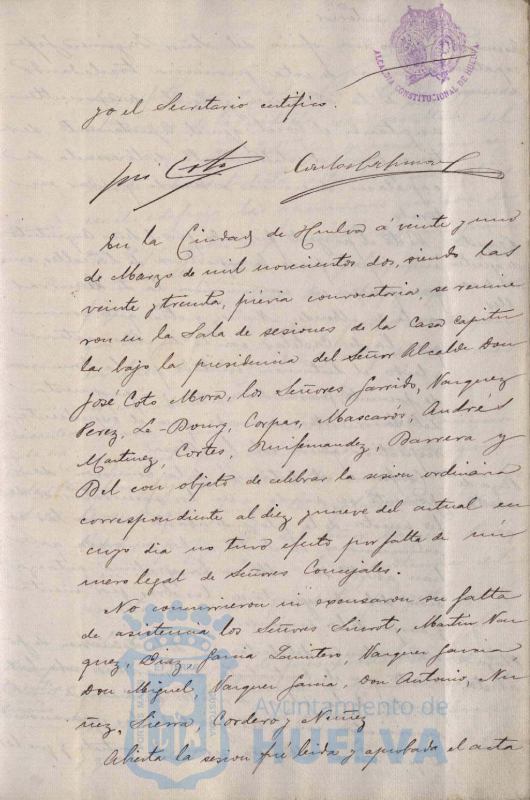 ALCALDIA CONSTITUCIONAL DE HUELVA
yo el Secretario certifico.
José Coto
En la Ciudad de Huelva á veinte y uno
de Marzo de mil novecientos dos, siendo las
veinte y treinta, prévia convocatoria, se reunie
ron en la Sala de sesiones de la Casa Capitu
lar bajo la presidencia del Señor Alcalde Don
José Coto Mora, los Señores Garrido, Vazquez
Perez, Le-Bourg, Corpas, Mascarós, Andrés
Martinez, Cortes, Ruifernandez, Barrera y
Bel con objeto de celebrar la sesion ordinaria
correspondiente al diez y nueve del actual en
cuyo dia no tuvo efecto por falta de nú
mero legal de Señores Concejales.
No concurrieron ni escusaron su falta
de asistencia los Señores Martin Vaz
quez, Diaz, Garcia Quintero, Vazquez Garcia
Don Miguel, Vazquez Garcia, Don Antonio, Nu
ñez, Sierra, Cordero y
Ayuntamiento de
HUELVA
Abierta la sesion fué leida y aprobada el acta